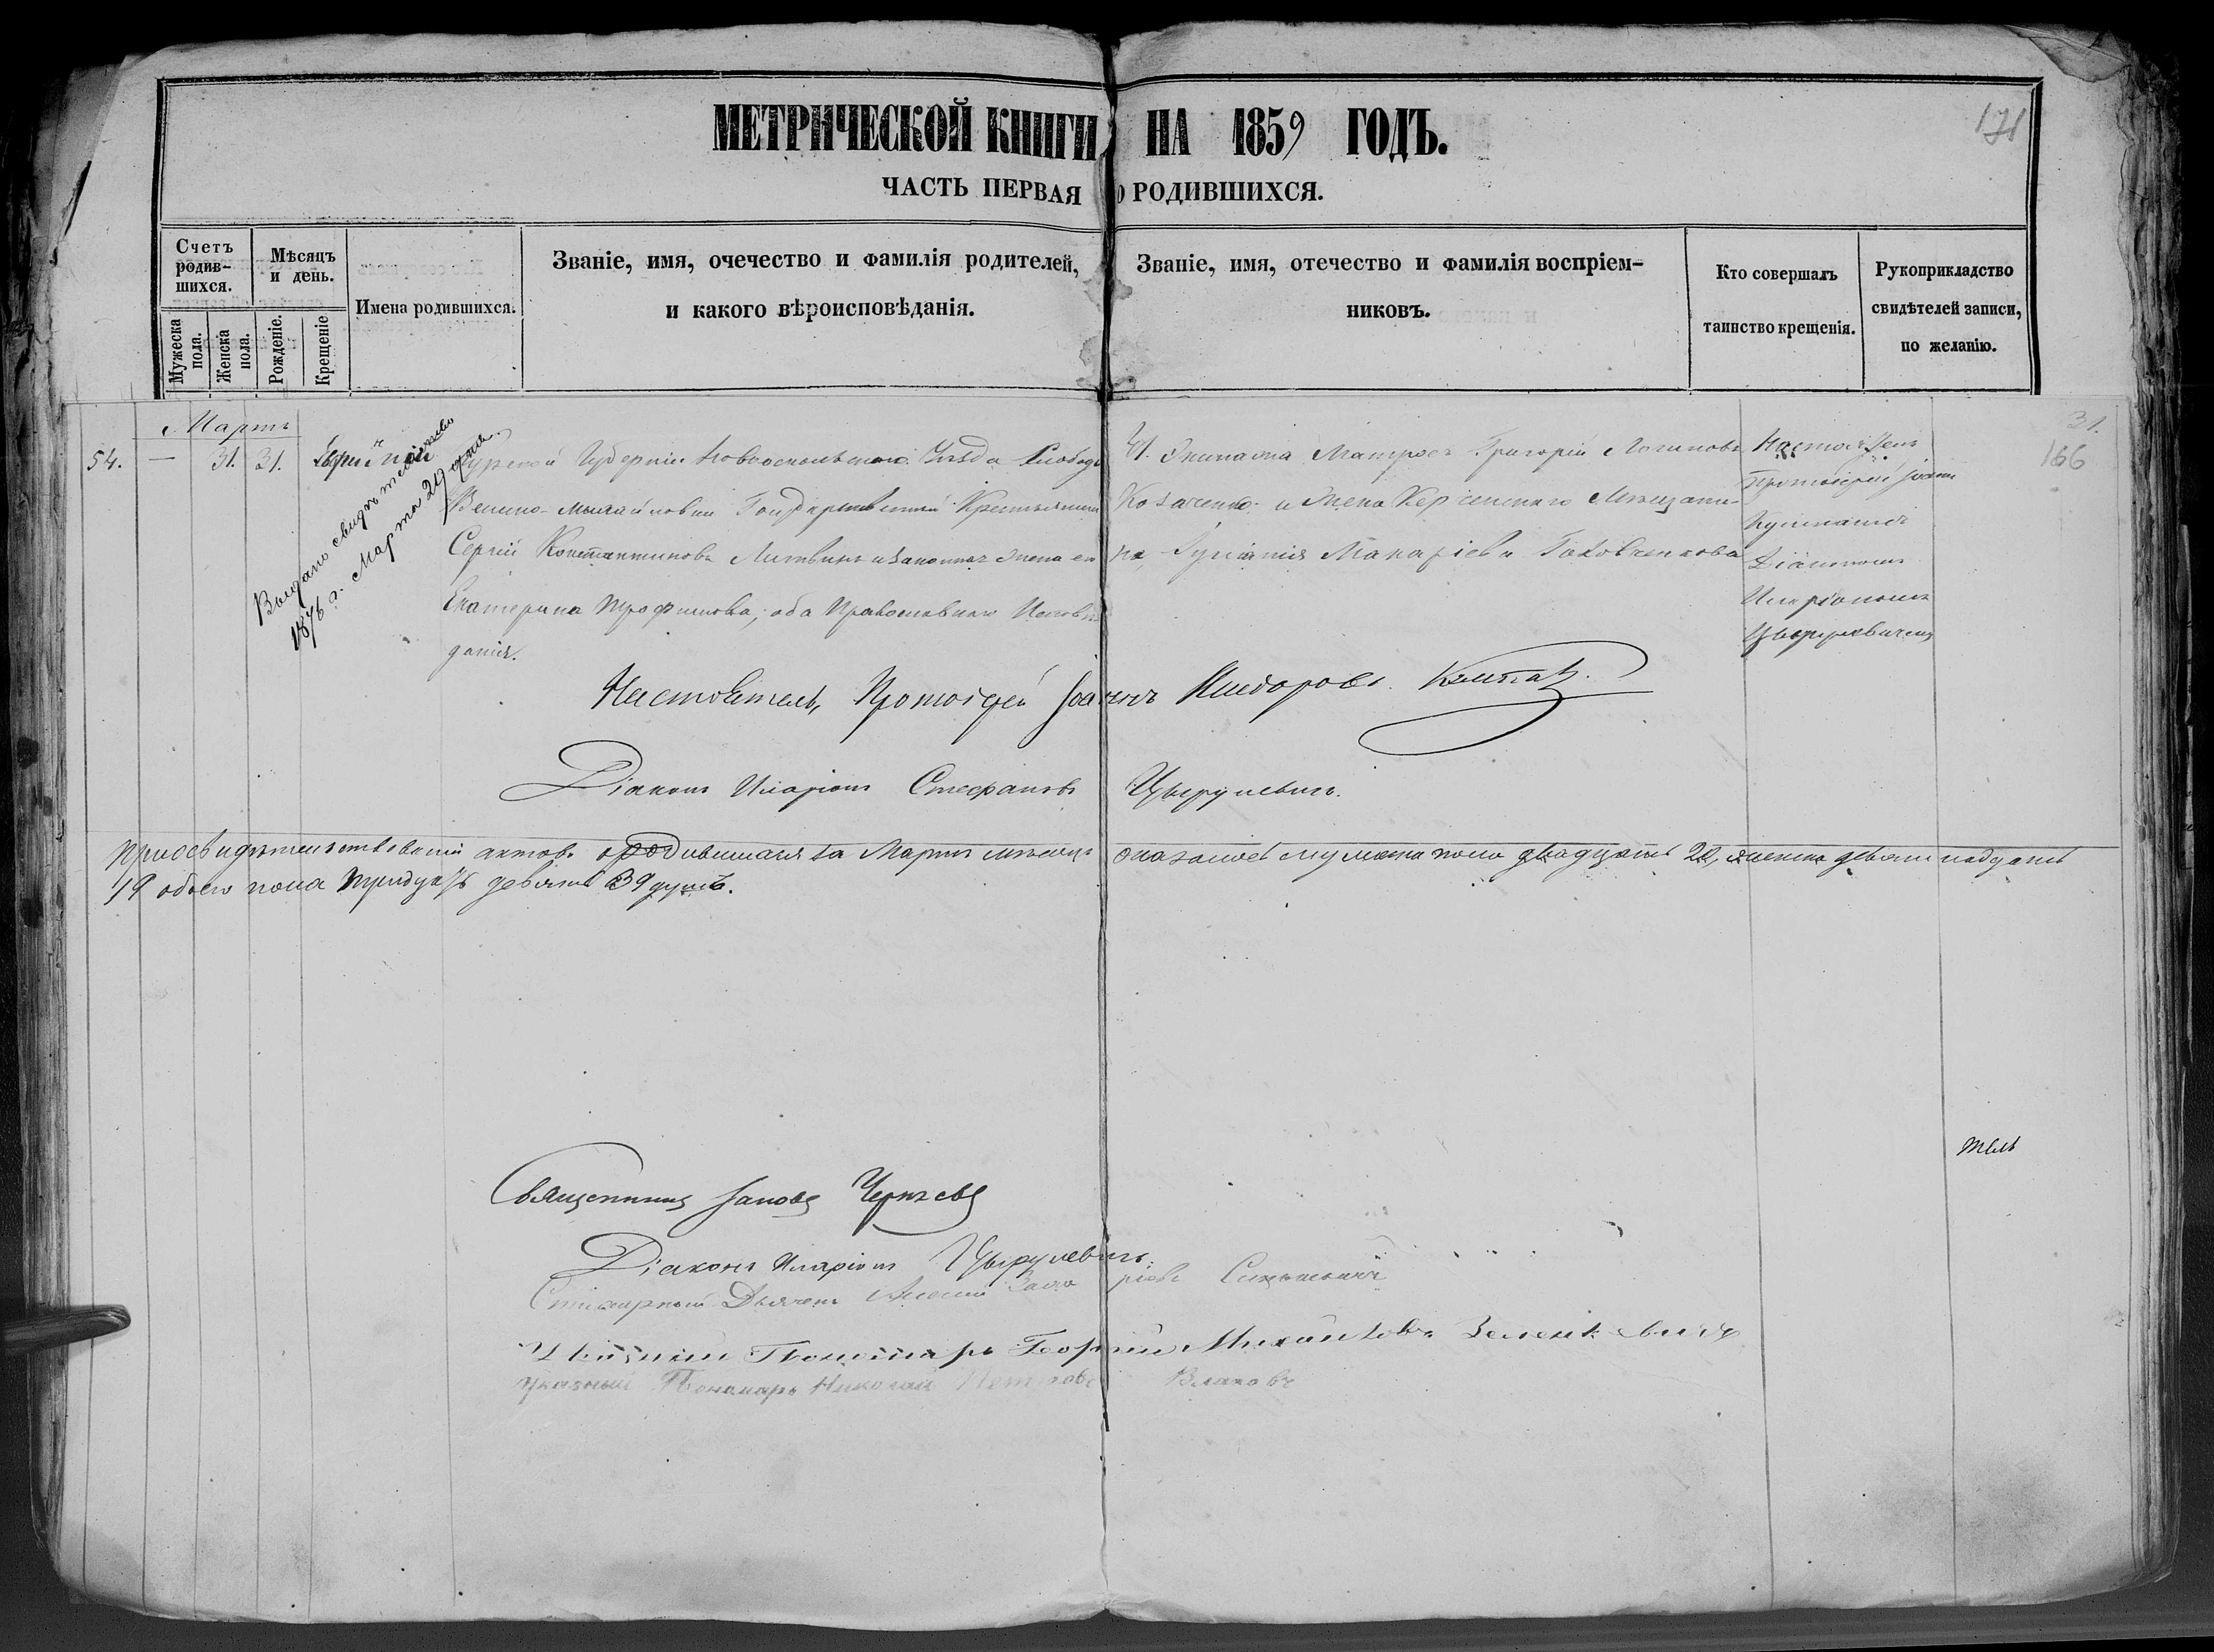 МЕТРИЧЕСКОЙ КНИГИ НА 1859 ГОДЪ.
171
ЧАСТЬ ПЕРВАЯ О РОДИВШИХСЯ.
Счетъ родив-шихся.
Мужеска пола.
Женска пола.
Мѣсяцъ и день.
Рожденіе.
Крещеніе
Имена родившихся.
Званіе, имя, очечество и фамилія родителей,
и какого вѣроисповѣданія.
Званіе, имя, отечество и фамилія воспріем-
никовъ.
Кто совершалъ
таинство крещенія.
Рукоприкладство
свидѣтелей записи,
по желанію.
31.
166
Мартъ
54. — 31. 31.
Выдано свидѣтельство
1876 г. Марта 29 дня.
Курской Губерніи Новооскольскаго Уѣзда Слободы
Велико-Михайловки Крестьянинъ
Сергій Константиновъ Литвинъ и законная жена его
Екатерина Трофимова, оба Православнаго Исповѣ
данія.
Экипажа Матросъ Григорій Логиновъ
Козаченко и Жена Керченскаго Мѣщани-
на Макаріева
Настоятель
Протоіерей Іоаннъ
Діакономъ
Иларіономъ
Цырулевичемъ
Настоятель, Протоіерей Іоаннъ
Діаконъ Иларіонъ Стефановъ Цырулевичъ.
При освидѣтельствованіи актовъ о родившихся за Мартъ мѣсяцъ оказалось мужеска пола двадцать 20, женска девятнадцать
19 обоего пола тридцать девять 39 душъ.
тель
Священникъ Іаковъ Чернѣевъ
Діаконъ Иларіонъ Цырулевичъ.
Стихарный Дьячекъ
Пономарь Георгій Михайловъ Зеленкевичъ
Указный Пономарь Николай Петровъ Влаховъ